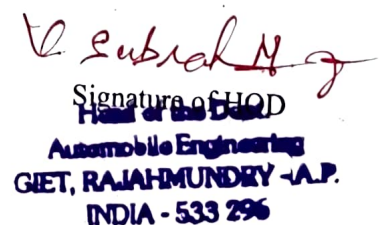 Signature of HOD
Head of the Dept.
Automobile Engineering
GIET, RAJAHMUNDRY -A.P.
INDIA - 533 296